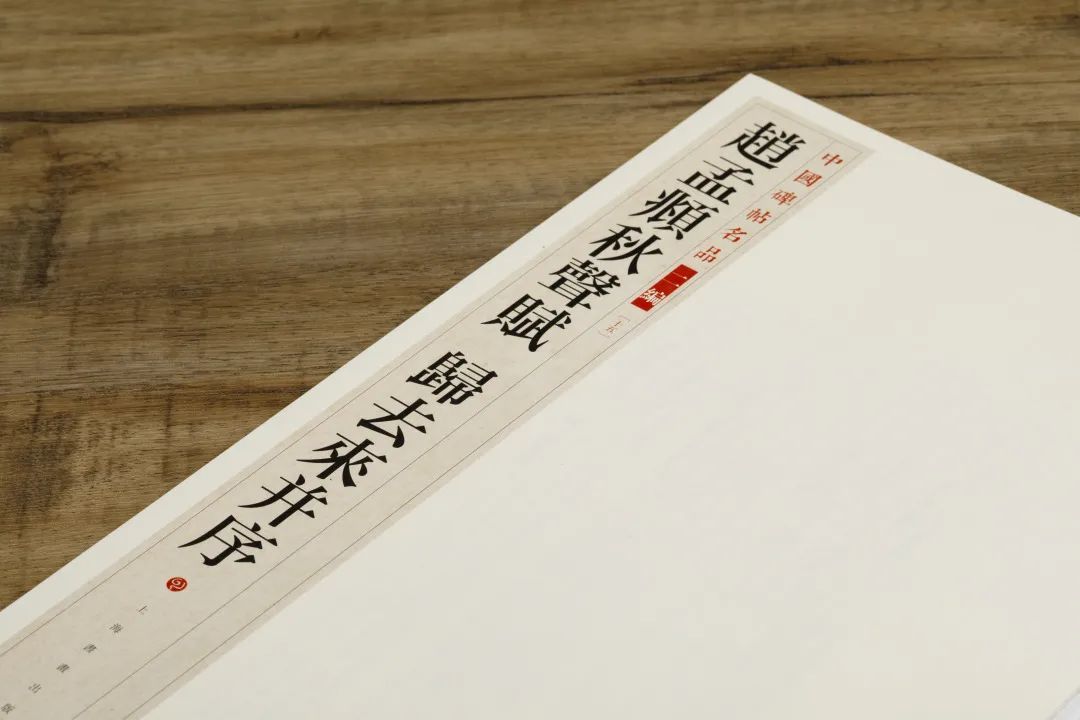 中國碑帖名品 二編
趙孟頫秋聲賦 歸去來并序
上海書畫出版